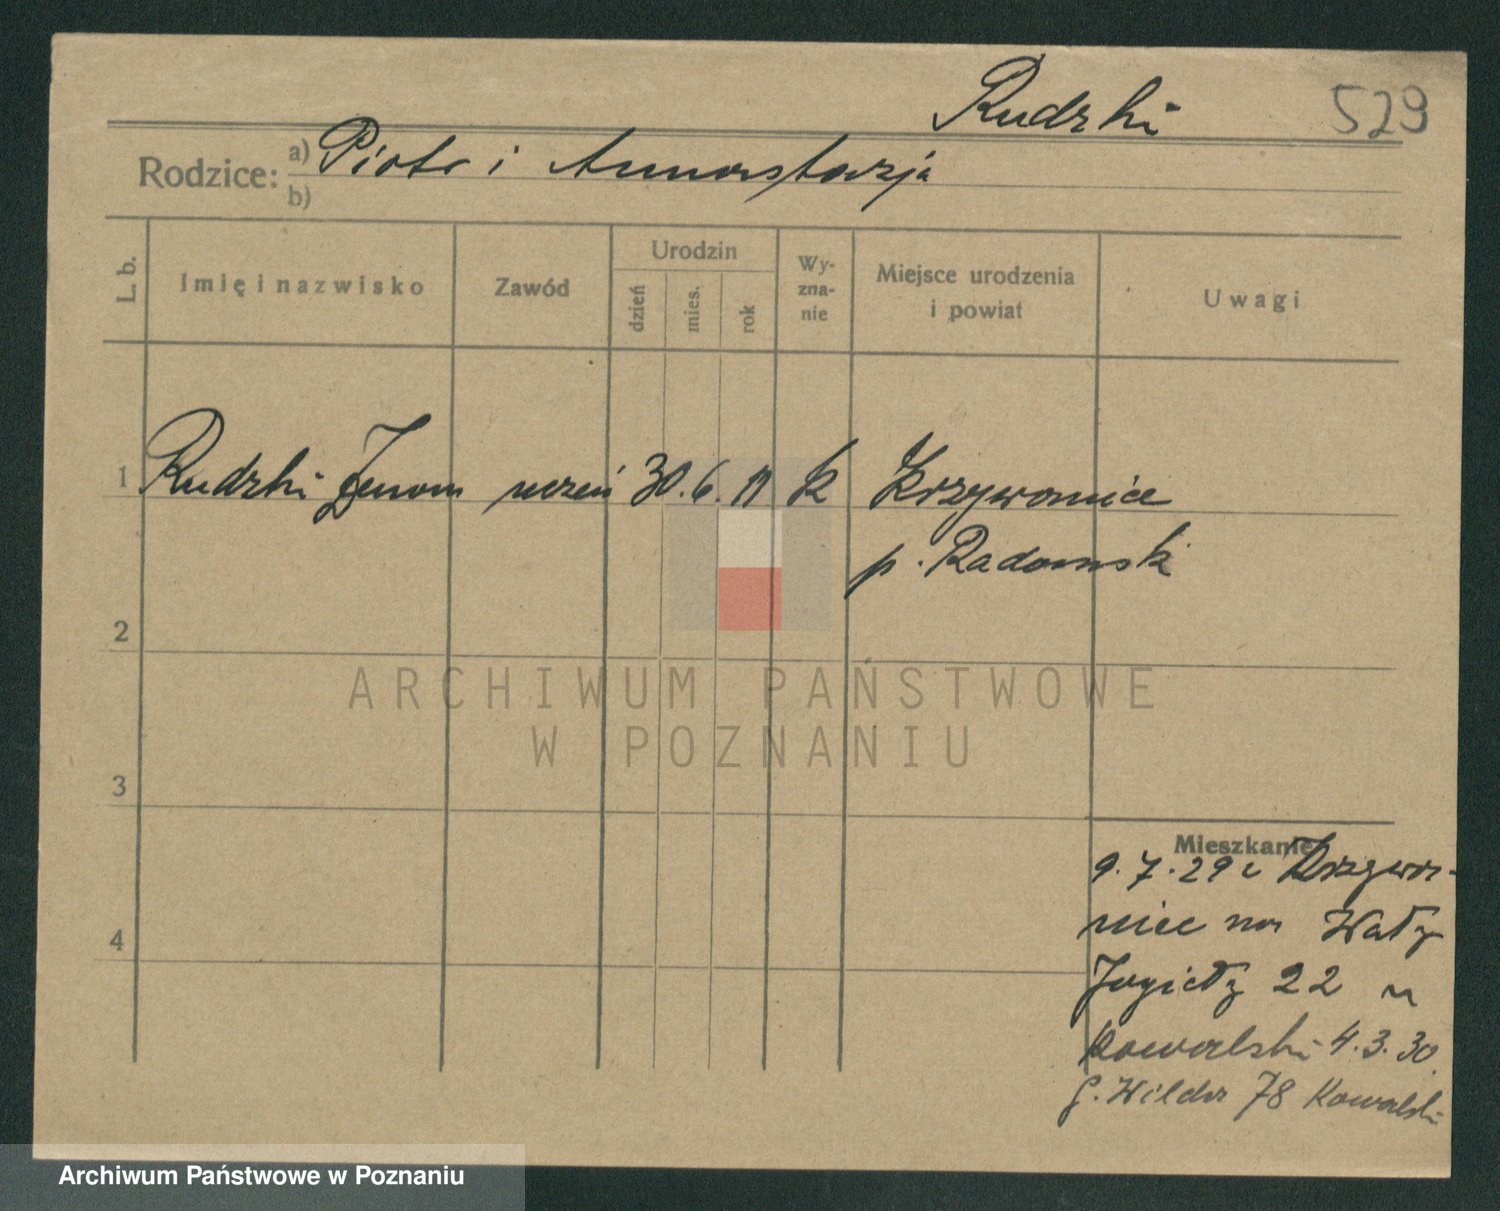 Rudzki 529
Rodzice: a) Piotr i Annastazja
b)
L. b. Imię i nazwisko Zawód Urodzin dzień mies. rok Wy-zna-nie Miejsce urodzenia i powiat Uwagi
1 Rudzki Zenon uczeń 30. 6. 11 k Krzywonice
p. Radomsk
2
ARCHIWUM PAŃSTWOWE
W POZNANIU
3
Mieszkanie
9. 7. 29 z Krzywo-
nice na Wały
Jagiełły 22 u
Kowalski 4. 3. 30
G. Wilda 78 Kowalski
4
Archiwum Państwowe w Poznaniu